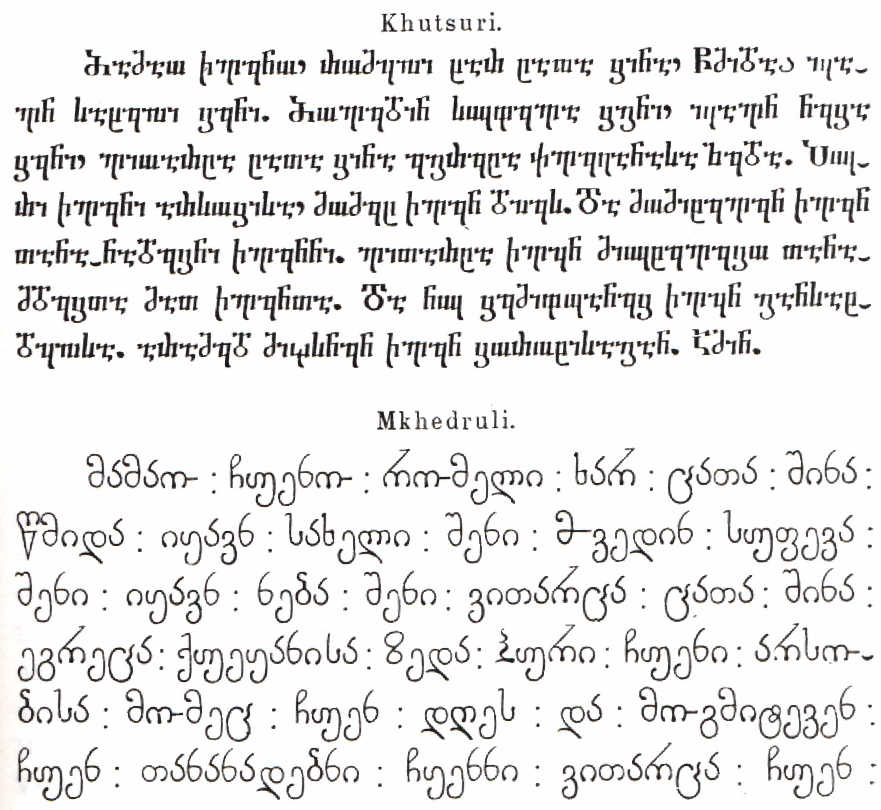 Khutsuri.
Ⴋⴀⴋⴀⴍ ⴙⴓⴄⴌⴍ, ⴐⴍⴋⴄⴊⴈ ⴞⴀⴐ ⴚⴀⴇⴀ ⴘⴈⴌⴀ, Ⴜⴋⴈⴃⴀ ⴈⴗⴀ-
ⴅⴌ ⴑⴀⴞⴄⴊⴈ ⴘⴄⴌⴈ. Ⴋⴍⴅⴄⴃⴈⴌ ⴑⴓⴔⴄⴅⴀ ⴘⴄⴌⴈ, ⴈⴗⴀⴅⴌ ⴌⴄⴁⴀ
ⴘⴄⴌⴈ, ⴅⴈⴇⴀⴐⴚⴀ ⴚⴀⴇⴀ ⴘⴈⴌⴀ ⴄⴂⴐⴄⴚⴀ ⴕⴓⴄⴗⴀⴌⴀⴑⴀ ⴆⴄⴃⴀ. Ⴎⴓ-
ⴐⴈ ⴙⴓⴄⴌⴈ ⴀⴐⴑⴍⴁⴈⴑⴀ, ⴋⴍⴋⴄⴚ ⴙⴓⴄⴌ ⴃⴖⴄⴑ. Ⴃⴀ ⴋⴍⴋⴈⴒⴄⴅⴄⴌ ⴙⴓⴄⴌ
ⴇⴀⴌⴀ-ⴌⴀⴃⴄⴁⴌⴈ ⴙⴓⴄⴌⴌⴈ. ⴅⴈⴇⴀⴐⴚⴀ ⴙⴓⴄⴌ ⴋⴈⴓⴒⴄⴅⴄⴁⴍ ⴇⴀⴌⴀ-
ⴋⴃⴄⴁⴇⴀ ⴋⴀⴇ ⴙⴓⴄⴌⴇⴀ. Ⴃⴀ ⴌⴓ ⴘⴄⴋⴈⴗⴅⴀⴌⴄⴁ ⴙⴓⴄⴌ ⴂⴀⴌⴑⴀⴚ-
ⴃⴄⴊⴑⴀ. ⴀⴐⴀⴋⴄⴃ ⴋⴈⴞⴑⴌⴄⴌ ⴙⴓⴄⴌ ⴁⴍⴐⴍⴒⴈⴑⴀⴂⴀⴌ. Ⴀⴋⴈⴌ.
Mkhedruli.
მამაო : ჩუენო : რომელი : ხარ : ცათა : შინა :
წმიდა : იყავნ : სახელი : შენი : მოვედინ : სუფევა :
შენი : იყავნ : ნება : შენი : ვითარცა : ცათა : შინა :
ეგრეცა : ქუეყანისა : ზედა : პური : ჩუენი : არსო-
ბისა : მომეც : ჩუენ : დღეს : და : მოგმიტევენ :
ჩუენ : თანანადებნი : ჩუენნი : ვითარცა : ჩუენ :